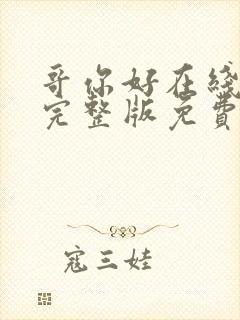 哥你好在綫
完整版免費
寇三娃